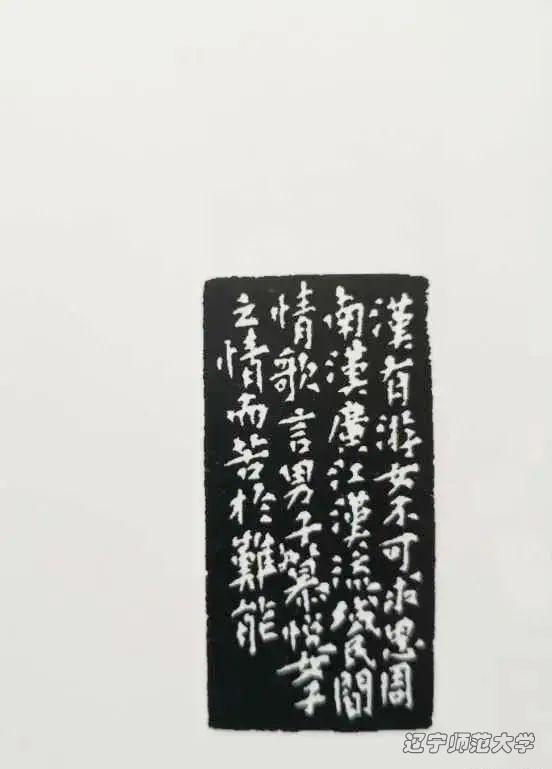 漢有游女不可求思周
南漢廣江漢流域民間
情歌言男子慕悦女子
之情而苦於難能
辽宁师范大学